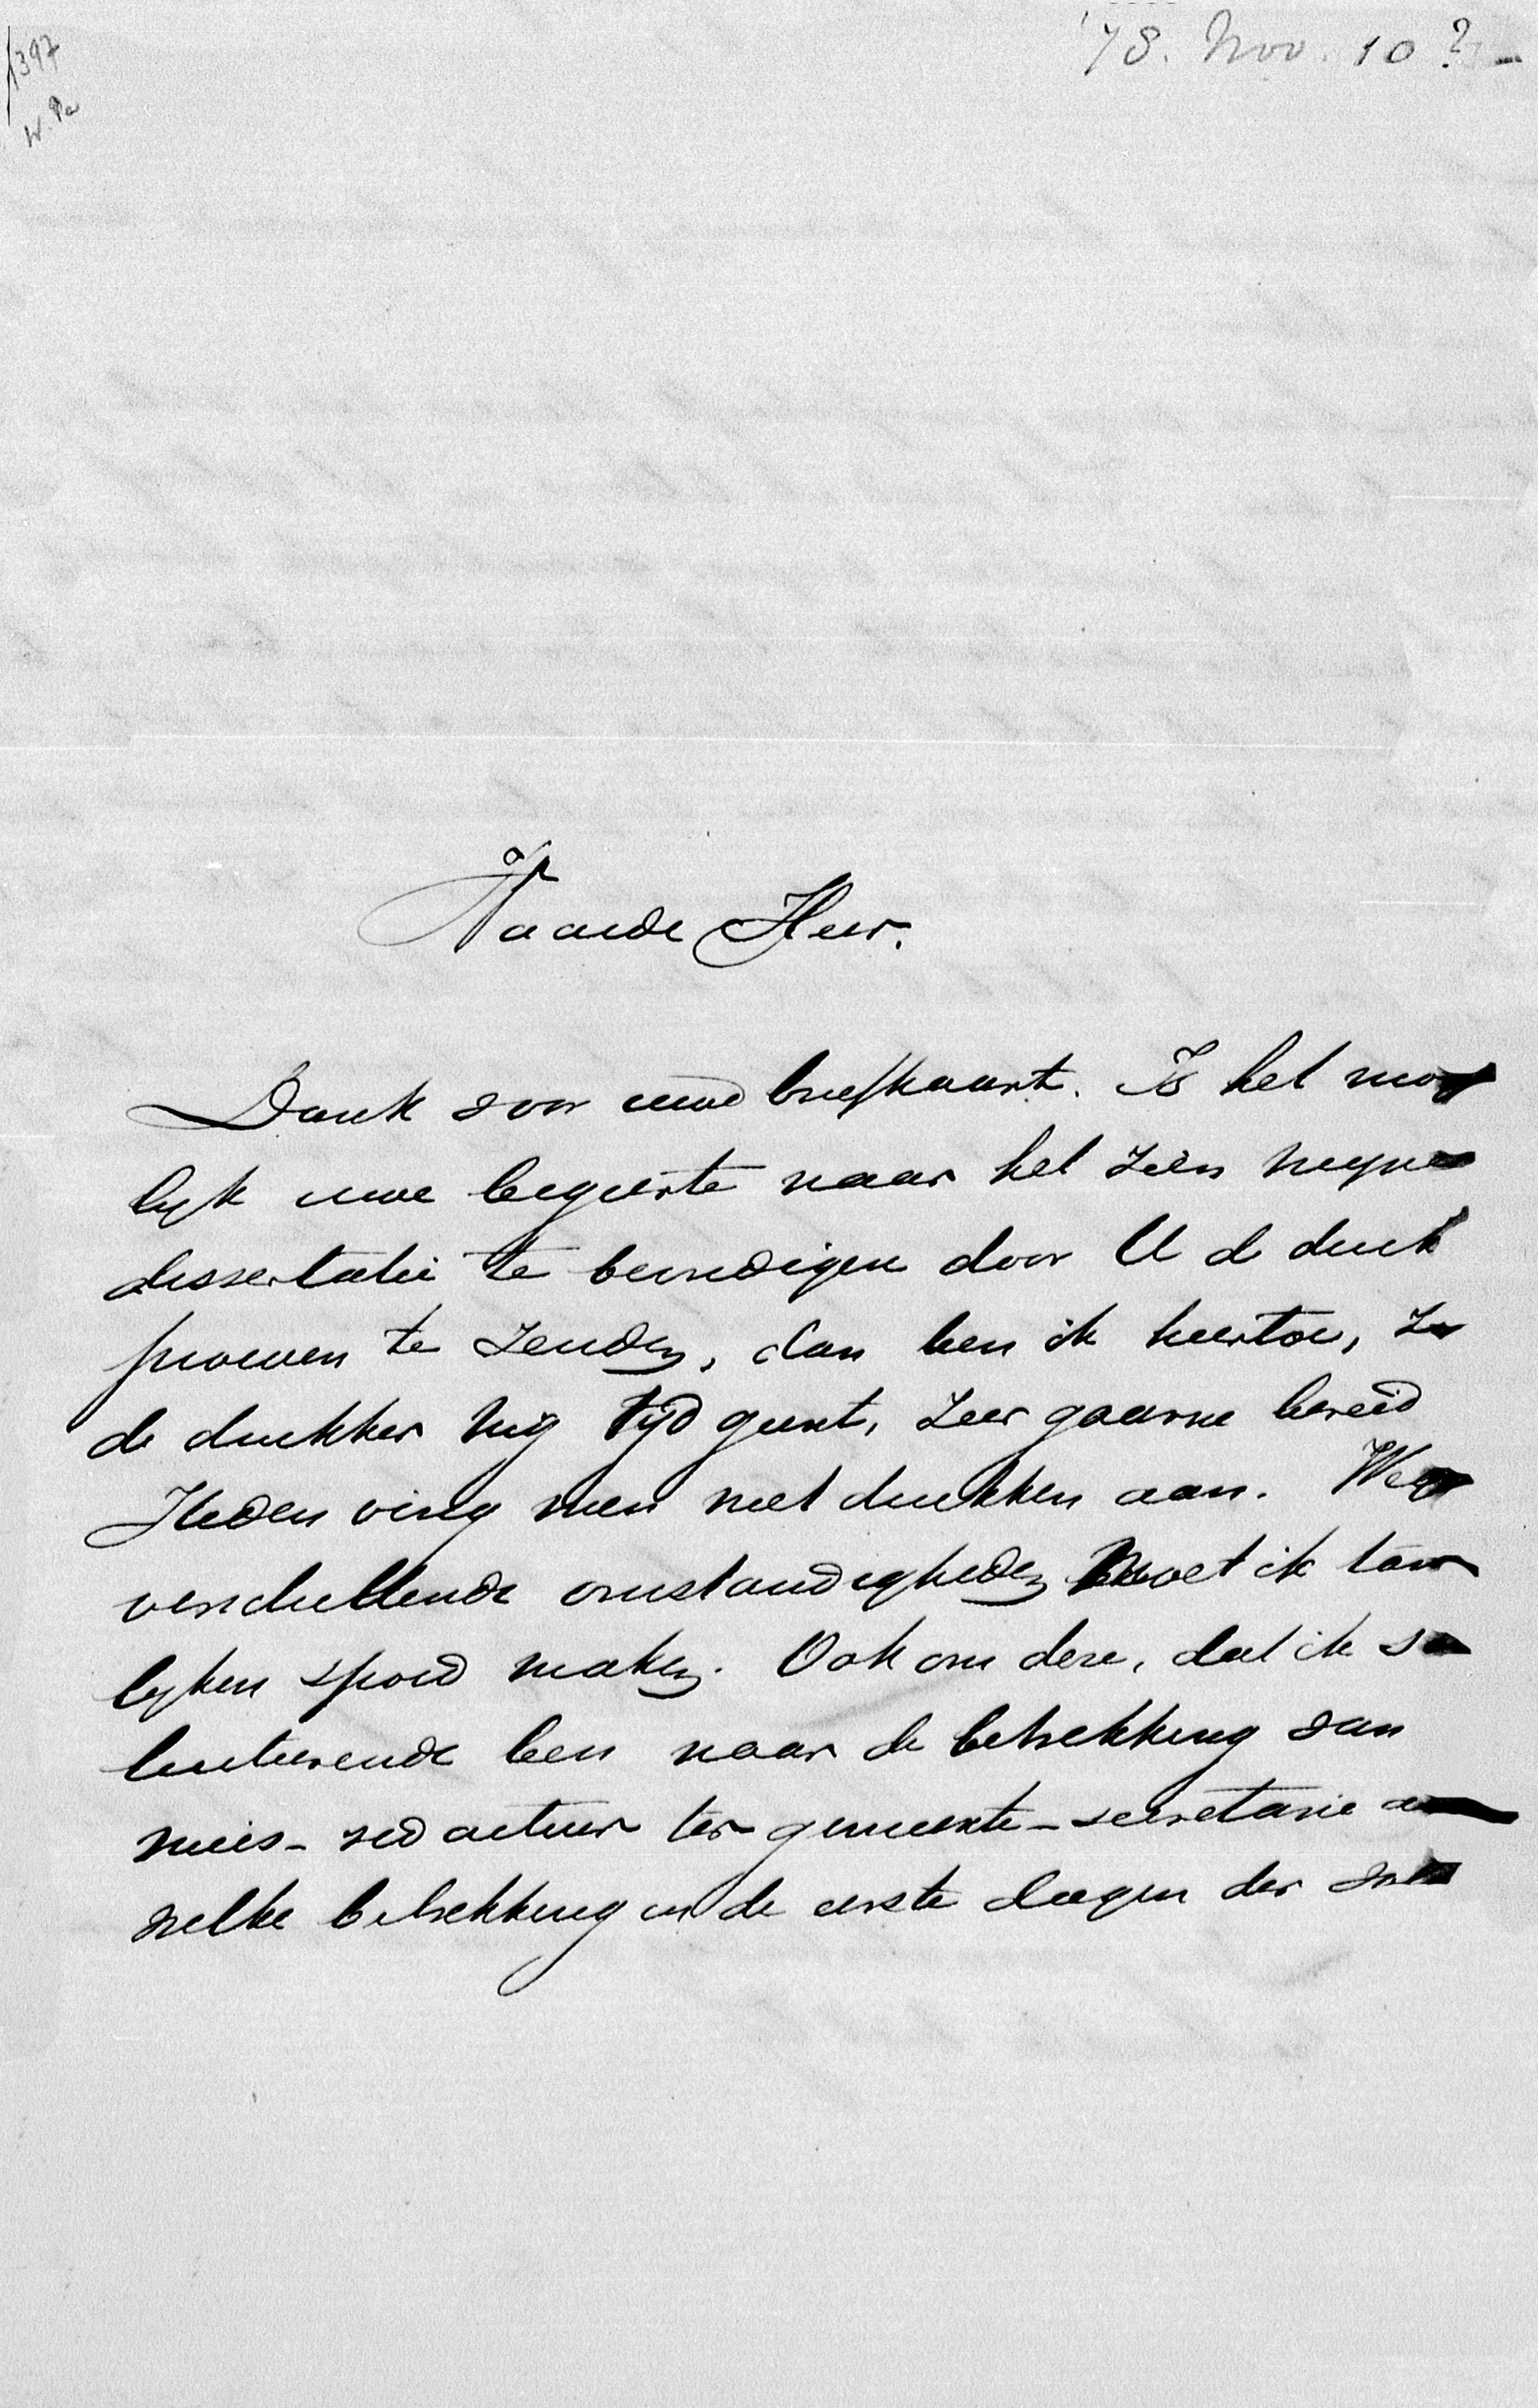 1397
W. Pa
'78. Nov. 10?
Waarde Heer.
Dank voor uwe briefkaart. Is het mog
lyk uwe begeerte naar het zien myner
dissertatie te bevredigen door U de druk
proeven te zenden, dan ben ik hiertoe, zo
de drukker my tyd gunt, zeer gaarne bereid
Heden ving men met drukken aan. Weg
verschillende omstandigheden moet ik tam
lyken spoed maken. Ook om deze, dat ik so
liciteerende ben naar de betrekking van
mies-redacteur ter gemeente-secretarie
welke betrekking in de eerste dagen der